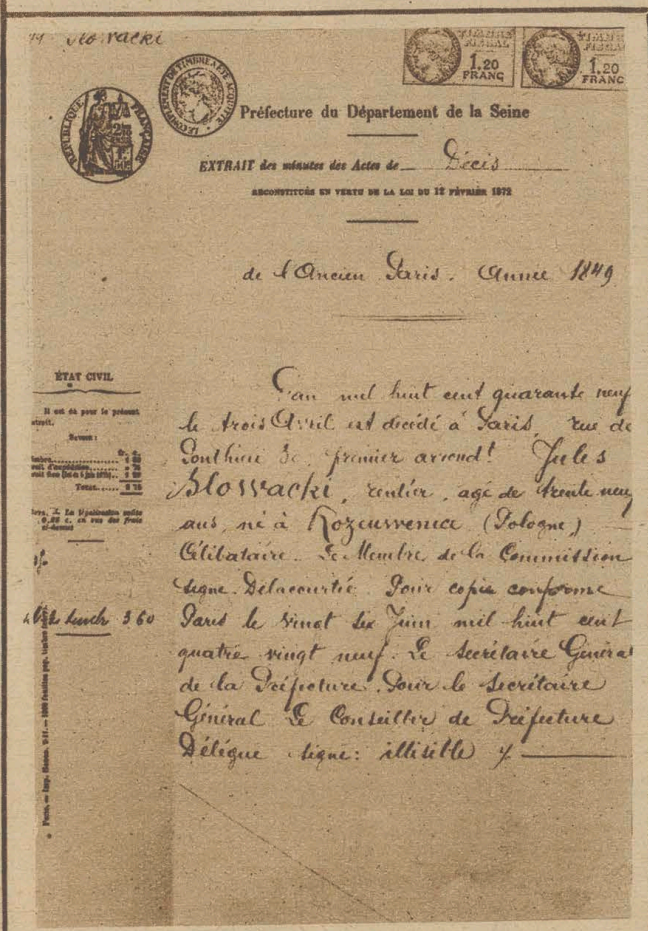 Slowacki
TIMBRE FISCAL
1,20
FRANC
TIMBRE FISCAL
1,20
FRANC
RÉPUBLIQUE FRANÇAISE
LE COMPLÉMENT DE TIMBRE A ÉTÉ ACQUITTÉ
Préfecture du Département de la Seine
EXTRAIT des minutes des Actes de Décis
RECONSTITUÉS EN VERTU DE LA LOI DU 12 FÉVRIER 1872
de l'Ancien Paris. Année 1849
ÉTAT CIVIL
Il est dû pour le présent
extrait.
Savoir :
L'an mil huit cent quarante neuf
le trois Avril est décédé à Paris, rue de
Ponthieu 30, premier arrond! Jules
Slowacki, rentier, agé de trente neuf
ans, né à Kozeuwenica (Pologne)
Célibataire. Le Membre de la Commission
signe. Delacourtié. Pour copie conforme
Paris le vingt six Juin mil huit cent
quatre vingt neuf. Le Secrétaire Général
de la Préfecture. Pour le Secrétaire
Général Le Conseiller de Préfecture
Délégué signe: illisible
360